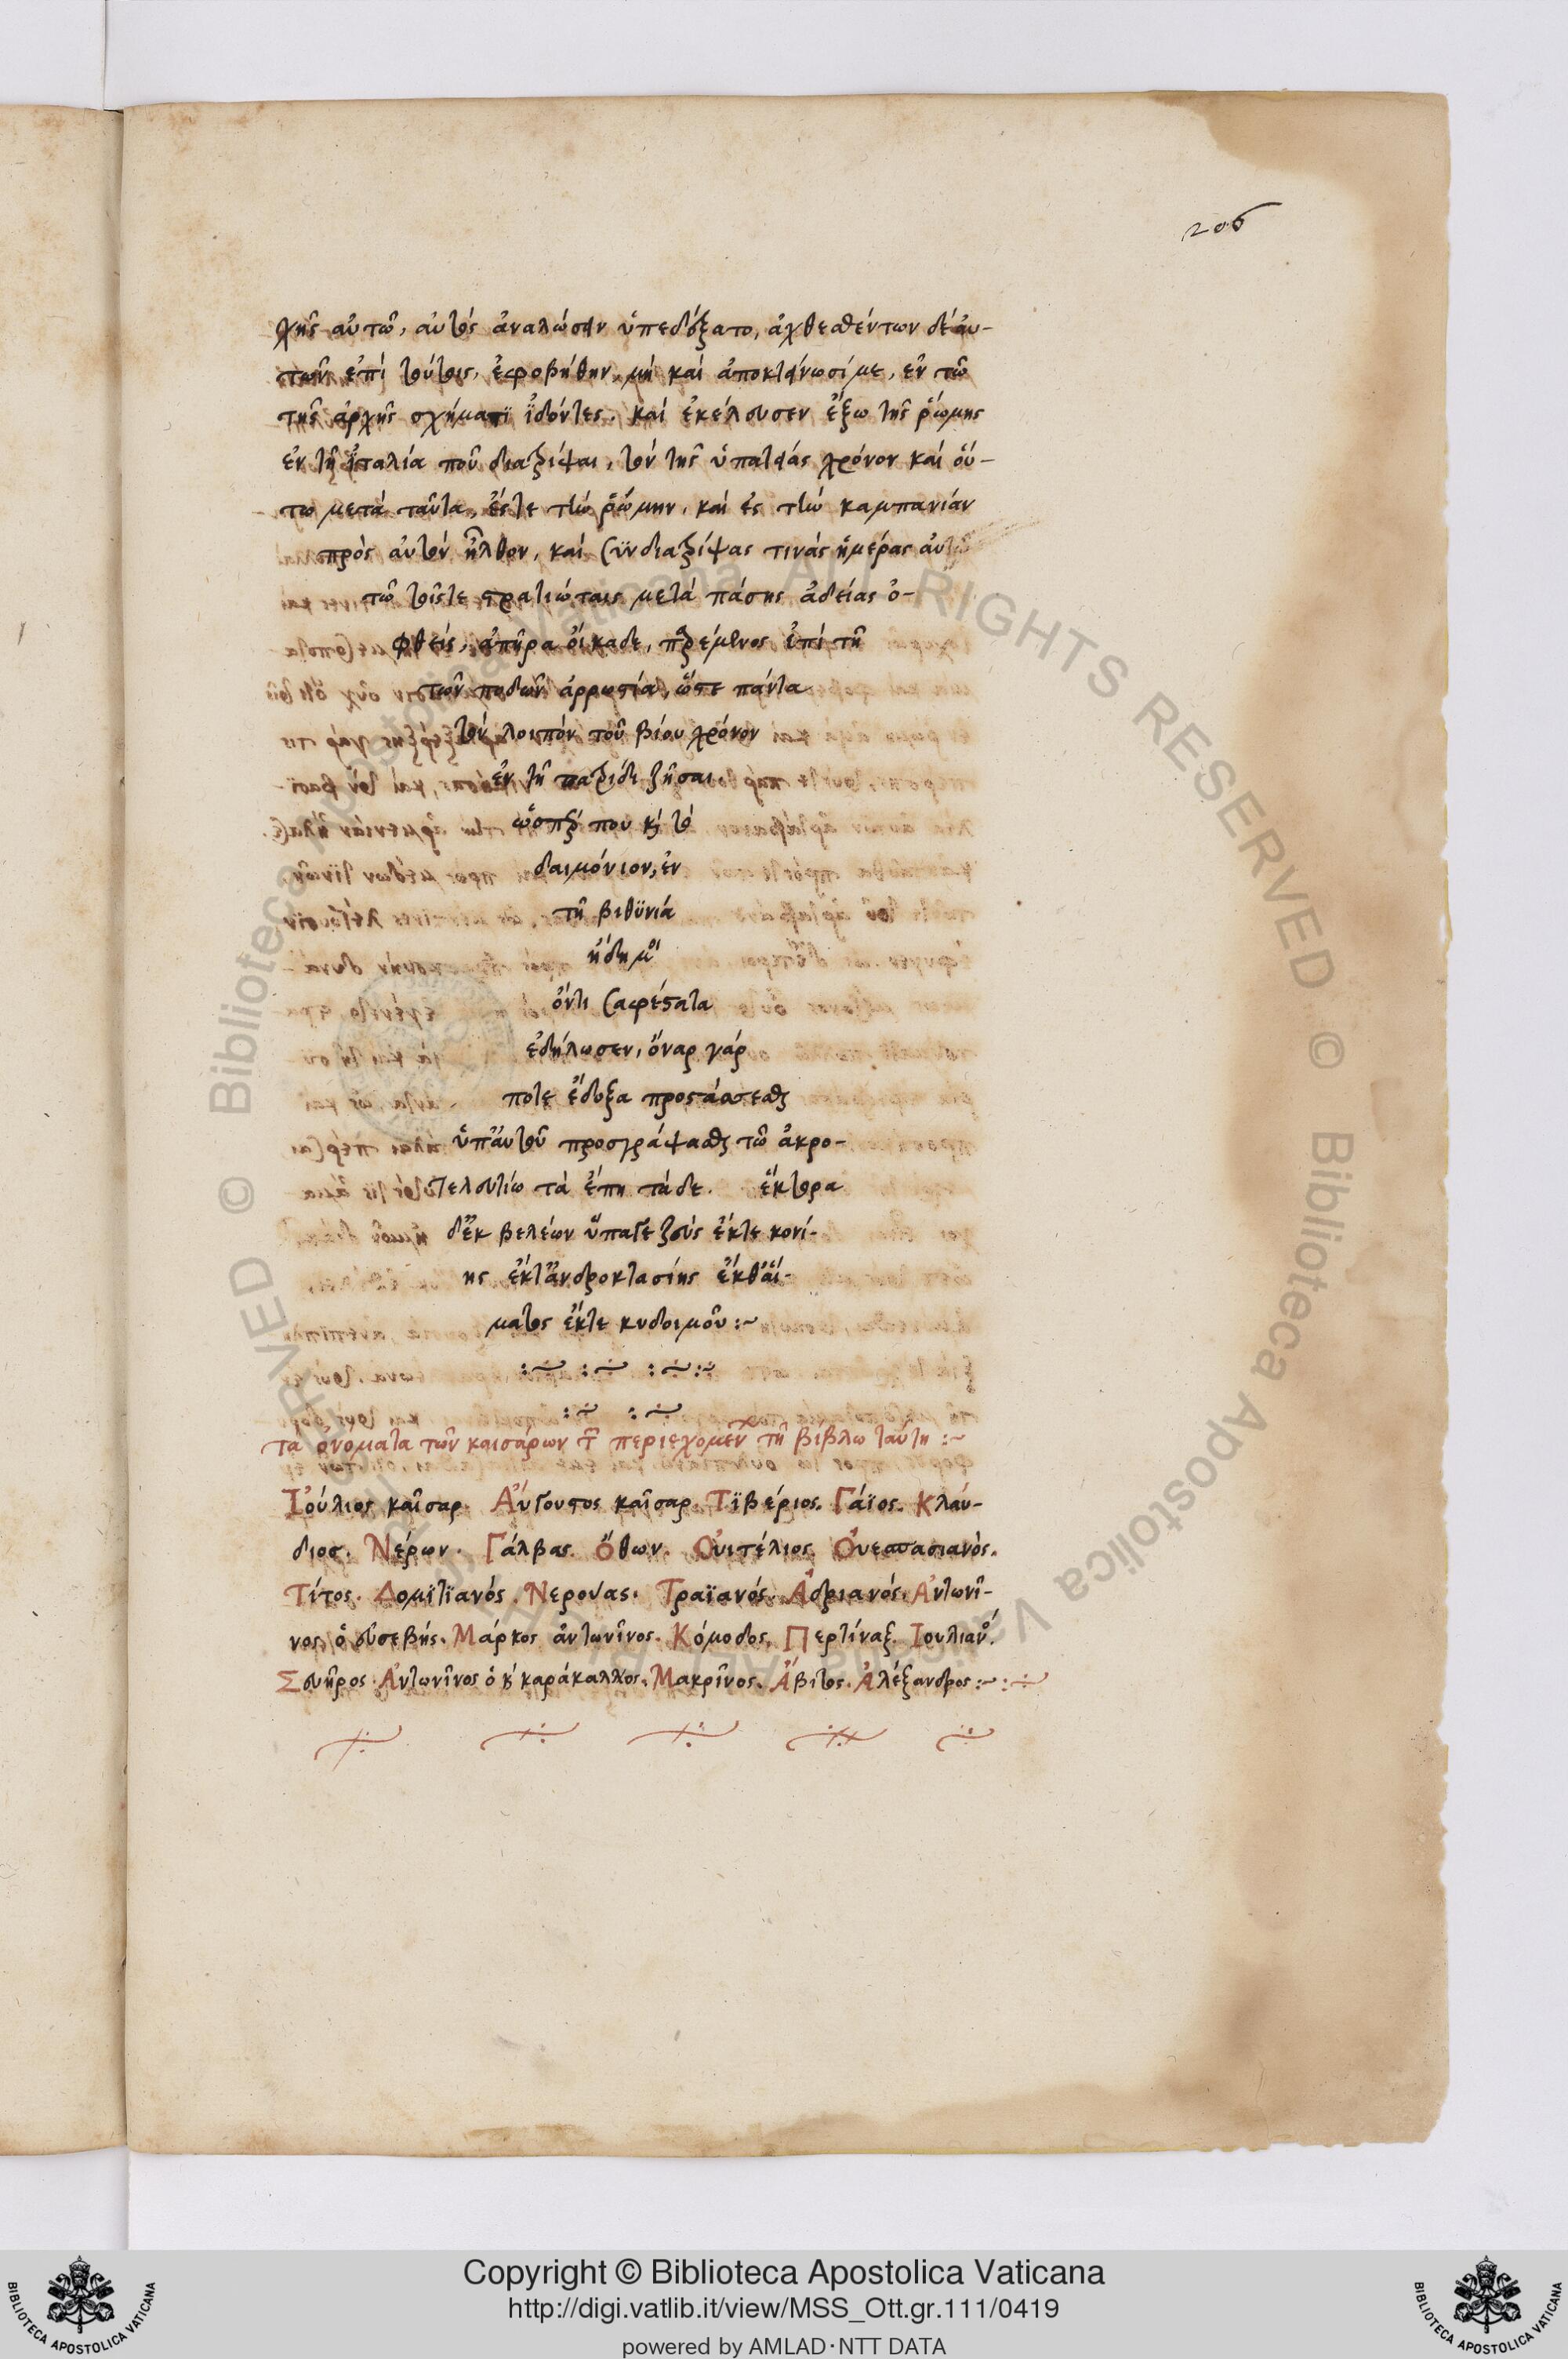 206
χῆς αὐτῶ, αὐτὸς ἀναλώσειν ὑπεδέξατο, ἀχθεσθέντων δὲ ἀυ-
τῶν ἐπὶ τούτοις, ἐφοβήθην μὴ καὶ ἀποκτείνωσί με, ἐν τῶ
τῆς ἀρχῆς σχήματϊ ἰδόντες. καὶ ἐκέλευσεν ἔξω τῆς ῥώμης
ἐν τῆ ἰταλία ποῦ διατρίψαι, τὸν τῆς ὑπατείας χρόνον καὶ οὕ-
τω μετὰ ταῦτα, ἔς τε τὴν ῥώμην, καὶ ἐς τὴν καμπανίαν
πρὸς αὐτὸν ἦλθον, καὶ συνδιατρίψας τινὰς ἡμέρας αὐτῶ
τῶ τοῖς τε στρατιώταις μετὰ πάσης ἀδείας ὀ-
φθείς, ἀπῆρα οἴκαδε, παρέμενος ἐπὶ τῆ
τῶν ποδῶν ἀρρωστία, ὥστε πάντα
τὸν λοιπὸν τοῦ βίου χρόνον
ἐν τῆ πατρίδι ζῆσαι
ὥσπερ που καὶ τὸ
δαιμόνιον, ἐν
τῆ βιθϋνία
ἤδη μοι
ὄντι σαφέστατα
ἐδήλωσεν, ὄναρ γάρ
ποτε ἔδοξα προστάσσεσθαι
ὑπ' ἀυτοῦ προσγράψασθαι τῶ ἀκρο-
τελευτίω τὰ ἔπη τάδε. ἕκτορα
δ' ἐκ βελέων ὕπαγε ζεὺς ἔκ τε κονί-
ης ἔκ τ' ἀνδροκτασίης ἔκ θ' αἵ-
ματος ἔκ τε κυδοιμοῦ :~
τὰ ὀνόματα τῶν καισάρων τῶν περιεχομένων τῆ βίβλω ταύτη :~
Ἰούλιος καῖσαρ. Αὔγουστος καῖσαρ. Τϊβέριος. Γάϊος. Κλαύ-
διος. Νέρων. Γάλβας. Ὄθων. Οὐιτέλιος. Οὐεσπασιανὸς.
Τίτος. Δομϊτϊανός. Νερούας. Τραϊανός. Ἀδριανός. Ἀντωνῖ-
νος ὁ εὐσεβής. Μάρκος ἀντωνῖνος. Κόμοδος. Περτίναξ. Ἰουλιανός.
Σευῆρος. Ἀντωνῖνος ὁ καὶ καράκαλλος. Μακρῖνος. Ἄβιτος. Ἀλέξανδρος :~
Copyright © Biblioteca Apostolica Vaticana
http://digi.vatlib.it/view/MSS_Ott.gr.111/0419
powered by AMLAD·NTT DATA